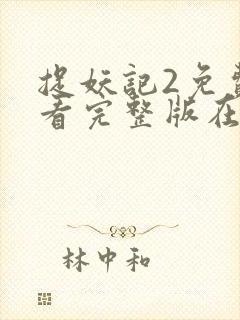 捉妖記2免費
看完整版在
林中和